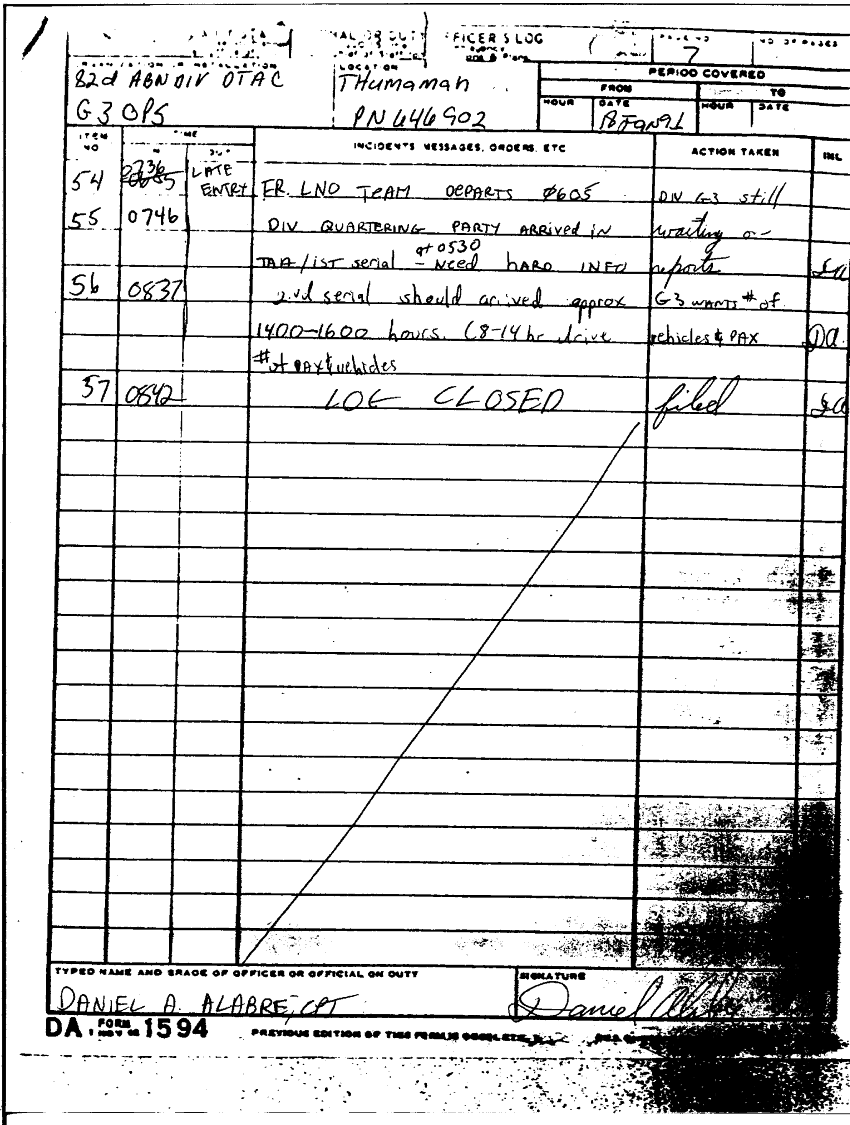 OFFICER'S LOG
PAGE NO
7
NO OF PAGES
LOCATION
PERIOD COVERED
82d ABN DIV DTAC
G3 OPS
THumamah
PN 646902
FROM
TO
HOUR
DATE
HOUR
DATE
18 JAN 91
ITEM NO
TIME
IN
OUT
INCIDENTS MESSAGES, ORDERS, ETC
ACTION TAKEN
INL
54 0736 LATE ENTRY FR. LNO TEAM DEPARTS 0605 DIV G3 still
55 0746 DIV QUARTERING PARTY ARRIVED IN waiting on
TAA/1ST serial at 0530 - Need HARD INFO reports
56 0837 2nd serial should arrived approx G3 WANTS # of
1400-1600 hours. (8-14 hr drive vehicles & PAX DA
# of PAX & vehicles
57 0842 LOG CLOSED filed
TYPED NAME AND GRADE OF OFFICER OR OFFICIAL ON DUTY
SIGNATURE
DANIEL A. ALABRE, CPT
Daniel
DA FORM 1594
PREVIOUS EDITION OF THIS FORM IS OBSOLETE